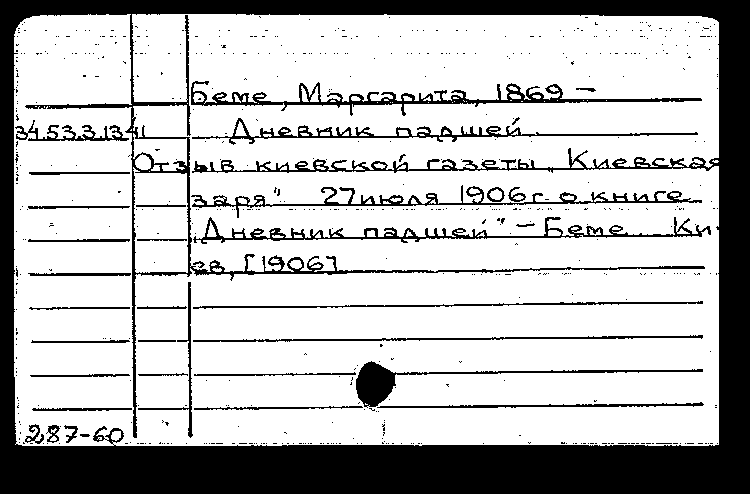 Беме, Маргарита, 1869 –
34.53.3.1341 Дневник падшей.
Отзыв киевской газеты „Киевская
заря" 27 июля 1906г о книге
„Дневник падшей" – Беме. Ки-
ев, [1906]
287-60